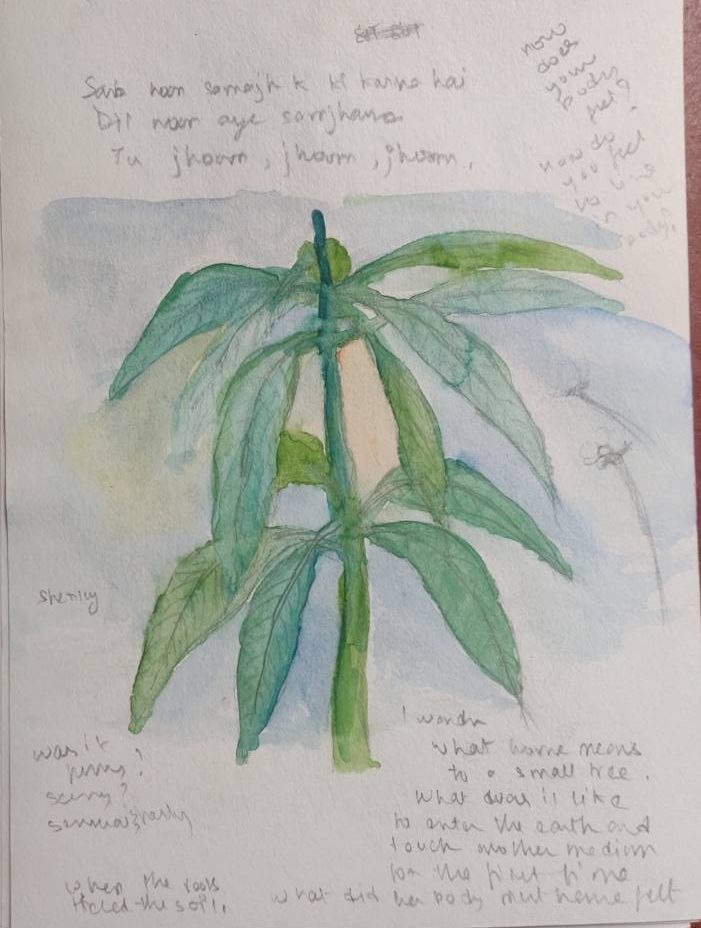 how
does
your
body
feel?
how do
you feel
in your
body?
Sab samajh k ki karna hai
Dil aye samjhana
Tu jhoom, jhoom, jhoom,
was it
funny?
scary?
when the roots
tickled the soil,
I wonder
what home means
to a small tree.
What does it like
to enter the earth and
touch another medium
for the first time
what did her body must have felt